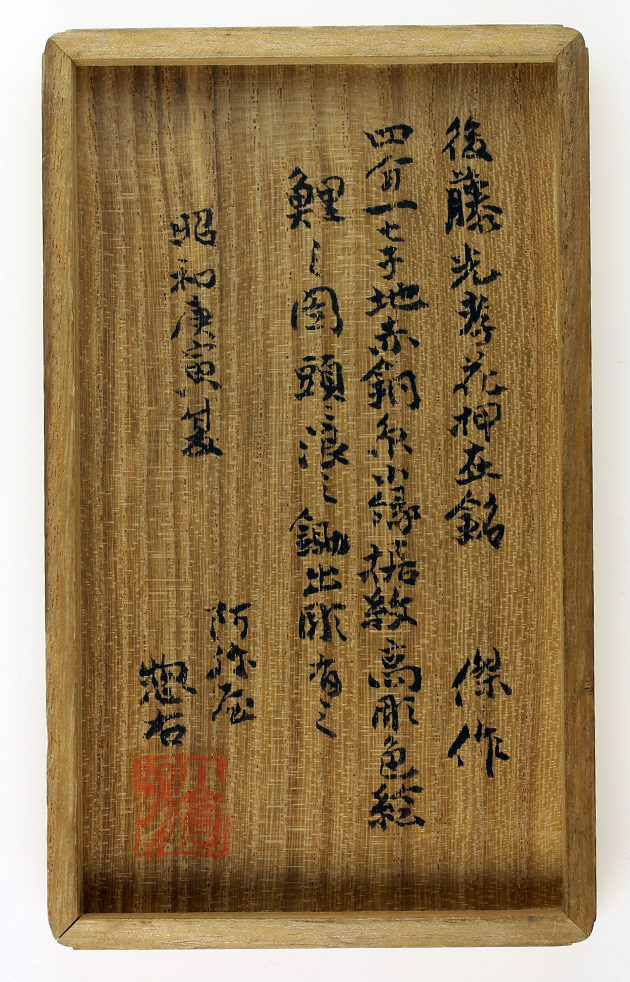 後藤光孝花押在銘 傑作
四分一七子地赤銅糸小縁据紋高彫色絵
鯉之図頭ニ浪之鋤出彫有之
昭和庚寅夏
阿弥屋
惣右